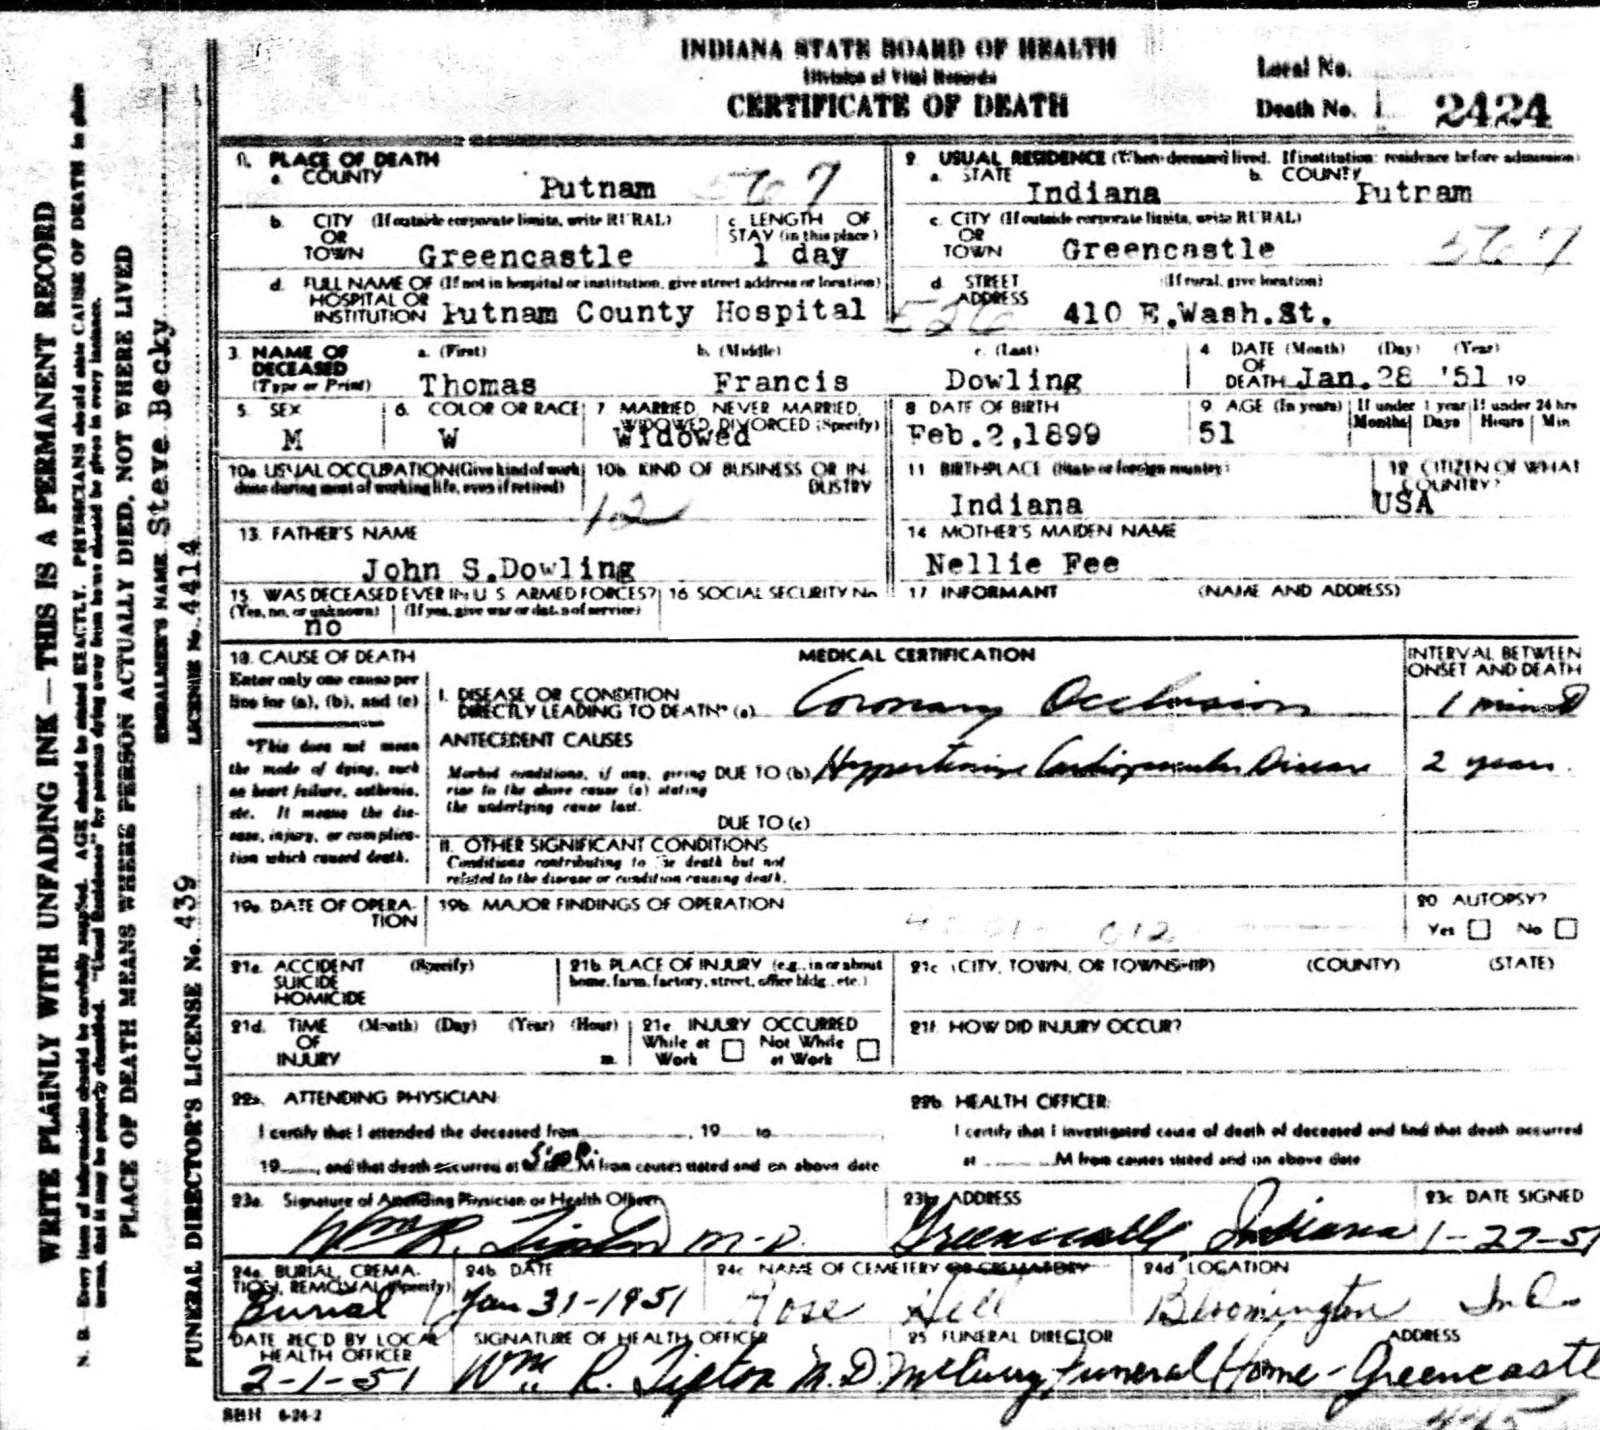 INDIANA STATE BOARD OF HEALTH
Division of Vital Records
CERTIFICATE OF DEATH
Local No.
Death No. 2424
1. PLACE OF DEATH
a. COUNTY
Putnam 567
2. USUAL RESIDENCE (Where deceased lived. If institution: residence before admission)
a. STATE Indiana b. COUNTY Putnam
b. CITY (If outside corporate limits, write RURAL)
OR
TOWN Greencastle
c. LENGTH OF
STAY (in this place)
1 day
c. CITY (If outside corporate limits, write RURAL)
OR
TOWN Greencastle 567
d. FULL NAME OF (If not in hospital or institution, give street address or location)
HOSPITAL OR
INSTITUTION Putnam County Hospital
d. STREET (If rural, give location)
ADDRESS 410 E.Wash.St.
526
3. NAME OF
DECEASED
(Type or Print)
a. (First) b. (Middle) c. (Last)
Thomas Francis Dowling
4. DATE (Month) (Day) (Year)
OF
DEATH Jan.28 '51 19
5. SEX
M
6. COLOR OR RACE
W
7. MARRIED, NEVER MARRIED,
WIDOWED, DIVORCED (Specify)
Widowed
8. DATE OF BIRTH
Feb.2,1899
9. AGE (In years)
51
If under 1 year
Months Days
If under 24 hrs
Hours Min
10a. USUAL OCCUPATION (Give kind of work
done during most of working life, even if retired)
10b. KIND OF BUSINESS OR IN-
DUSTRY
12
11. BIRTHPLACE (State or foreign country)
Indiana
12. CITIZEN OF WHAT
COUNTRY?
USA
13. FATHER'S NAME
John S.Dowling
14. MOTHER'S MAIDEN NAME
Nellie Fee
15. WAS DECEASED EVER IN U. S. ARMED FORCES?
(Yes, no, or unknown) (If yes, give war or dates of service)
no
16. SOCIAL SECURITY No.
17. INFORMANT (NAME AND ADDRESS)
18. CAUSE OF DEATH
Enter only one cause per
line for (a), (b), and (c)
*This does not mean
the mode of dying, such
as heart failure, asthenia,
etc. It means the dis-
ease, injury, or complica-
tion which caused death.
MEDICAL CERTIFICATION
INTERVAL BETWEEN
ONSET AND DEATH
I. DISEASE OR CONDITION
DIRECTLY LEADING TO DEATH* (a) Coronary Occlusion 1 minut
ANTECEDENT CAUSES
Morbid conditions, if any, giving
rise to the above cause (a) stating
the underlying cause last.
DUE TO (b) Hypertensive Cardiovascular Disease 2 years.
DUE TO (c)
II. OTHER SIGNIFICANT CONDITIONS
Conditions contributing to the death but not
related to the disease or condition causing death.
19a. DATE OF OPERA-
TION
19b. MAJOR FINDINGS OF OPERATION
012
20. AUTOPSY?
Yes No
21a. ACCIDENT (Specify)
SUICIDE
HOMICIDE
21b. PLACE OF INJURY (e.g., in or about
home, farm, factory, street, office bldg., etc.)
21c. (CITY, TOWN, OR TOWNSHIP) (COUNTY) (STATE)
21d. TIME (Month) (Day) (Year) (Hour)
OF
INJURY m.
21e. INJURY OCCURRED
While at Not While
Work at Work
21f. HOW DID INJURY OCCUR?
22a. ATTENDING PHYSICIAN:
I certify that I attended the deceased from , 19 to ,
19 , and that death occurred at M from causes stated and on above date
22b. HEALTH OFFICER:
I certify that I investigated cause of death of deceased and find that death occurred
at M from causes stated and on above date
23a. Signature of Attending Physician or Health Officer
Wm R. Tipton M.D.
23b. ADDRESS
Greencastle Indiana
23c. DATE SIGNED
1-29-51
24a. BURIAL, CREMA-
TION, REMOVAL (Specify)
Burial
24b. DATE
Jan 31-1951
24c. NAME OF CEMETERY OR CREMATORY
Rose Hill
24d. LOCATION
Bloomington Ind.
DATE REC'D BY LOCAL
HEALTH OFFICER
2-1-51
SIGNATURE OF HEALTH OFFICER
Wm. R. Tipton M.D.
25. FUNERAL DIRECTOR ADDRESS
McCurry Funeral Home - Greencastle
SBH 6-24-2
WRITE PLAINLY WITH UNFADING INK — THIS IS A PERMANENT RECORD
N. B. Every item of information should be carefully supplied. AGE should be stated EXACTLY. PHYSICIANS should state CAUSE OF DEATH in plain
terms, that it may be properly classified. "Usual Residence" for persons dying away from home should be given in every instance.
PLACE OF DEATH MEANS WHERE PERSON ACTUALLY DIED, NOT WHERE LIVED
EMBALMER'S NAME Steve Becky
FUNERAL DIRECTOR'S LICENSE No. 439
LICENSE No. 4414